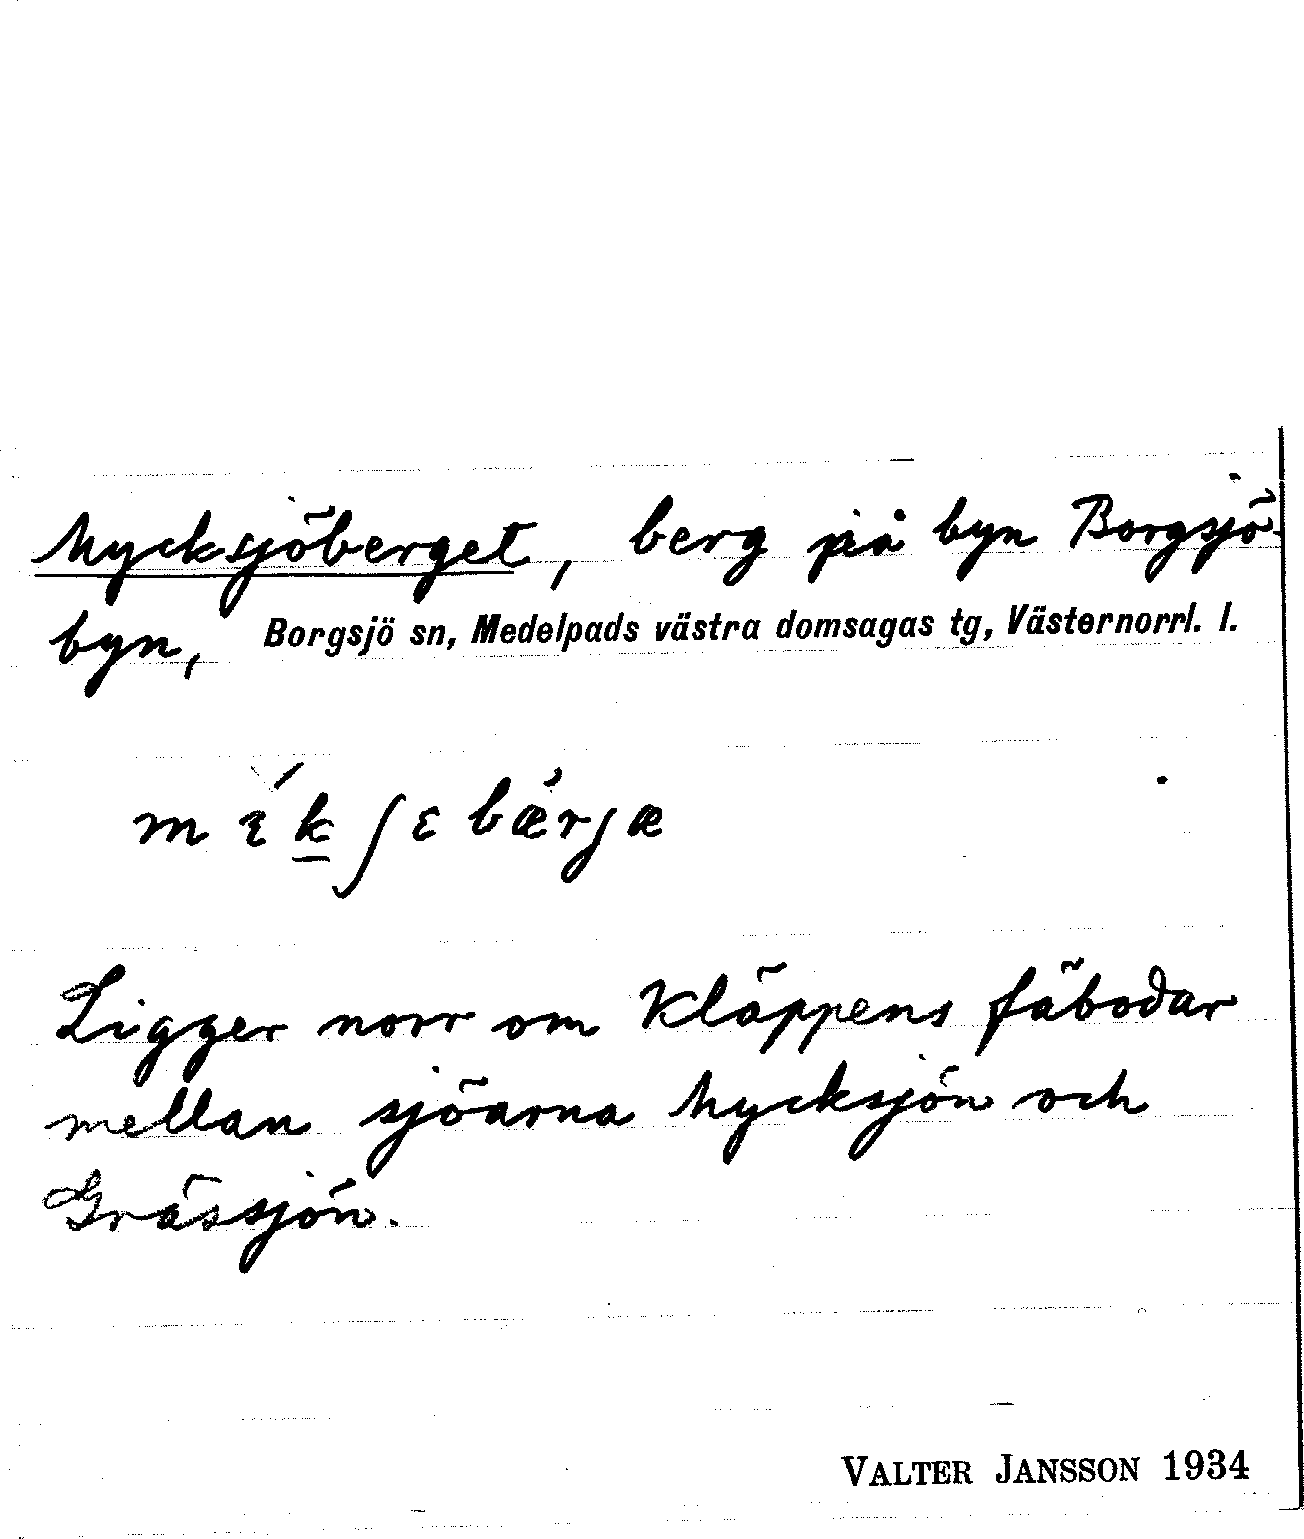 Mycksjöberget, berg på byn Borgsjö-
byn, Borgsjö sn, Medelpads västra domsagas tg, Västernorrl. l.
Ligger norr om Kläppens fäbodar
mellan sjöarna Mycksjön och
Grässjön.
VALTER JANSSON 1934